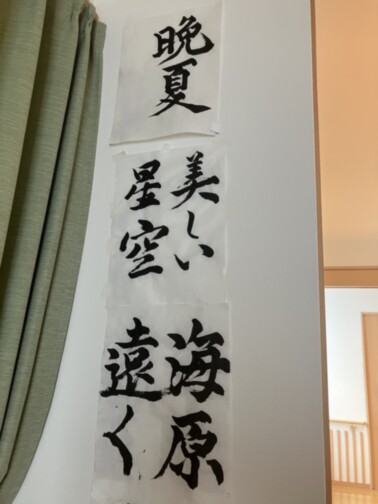 晩夏
美しい
星空
海原
遠く